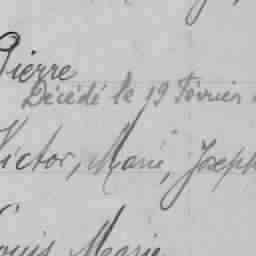 Pierre
Décédé le 19 Février
Victor, Marie, Joseph
Louis Marie